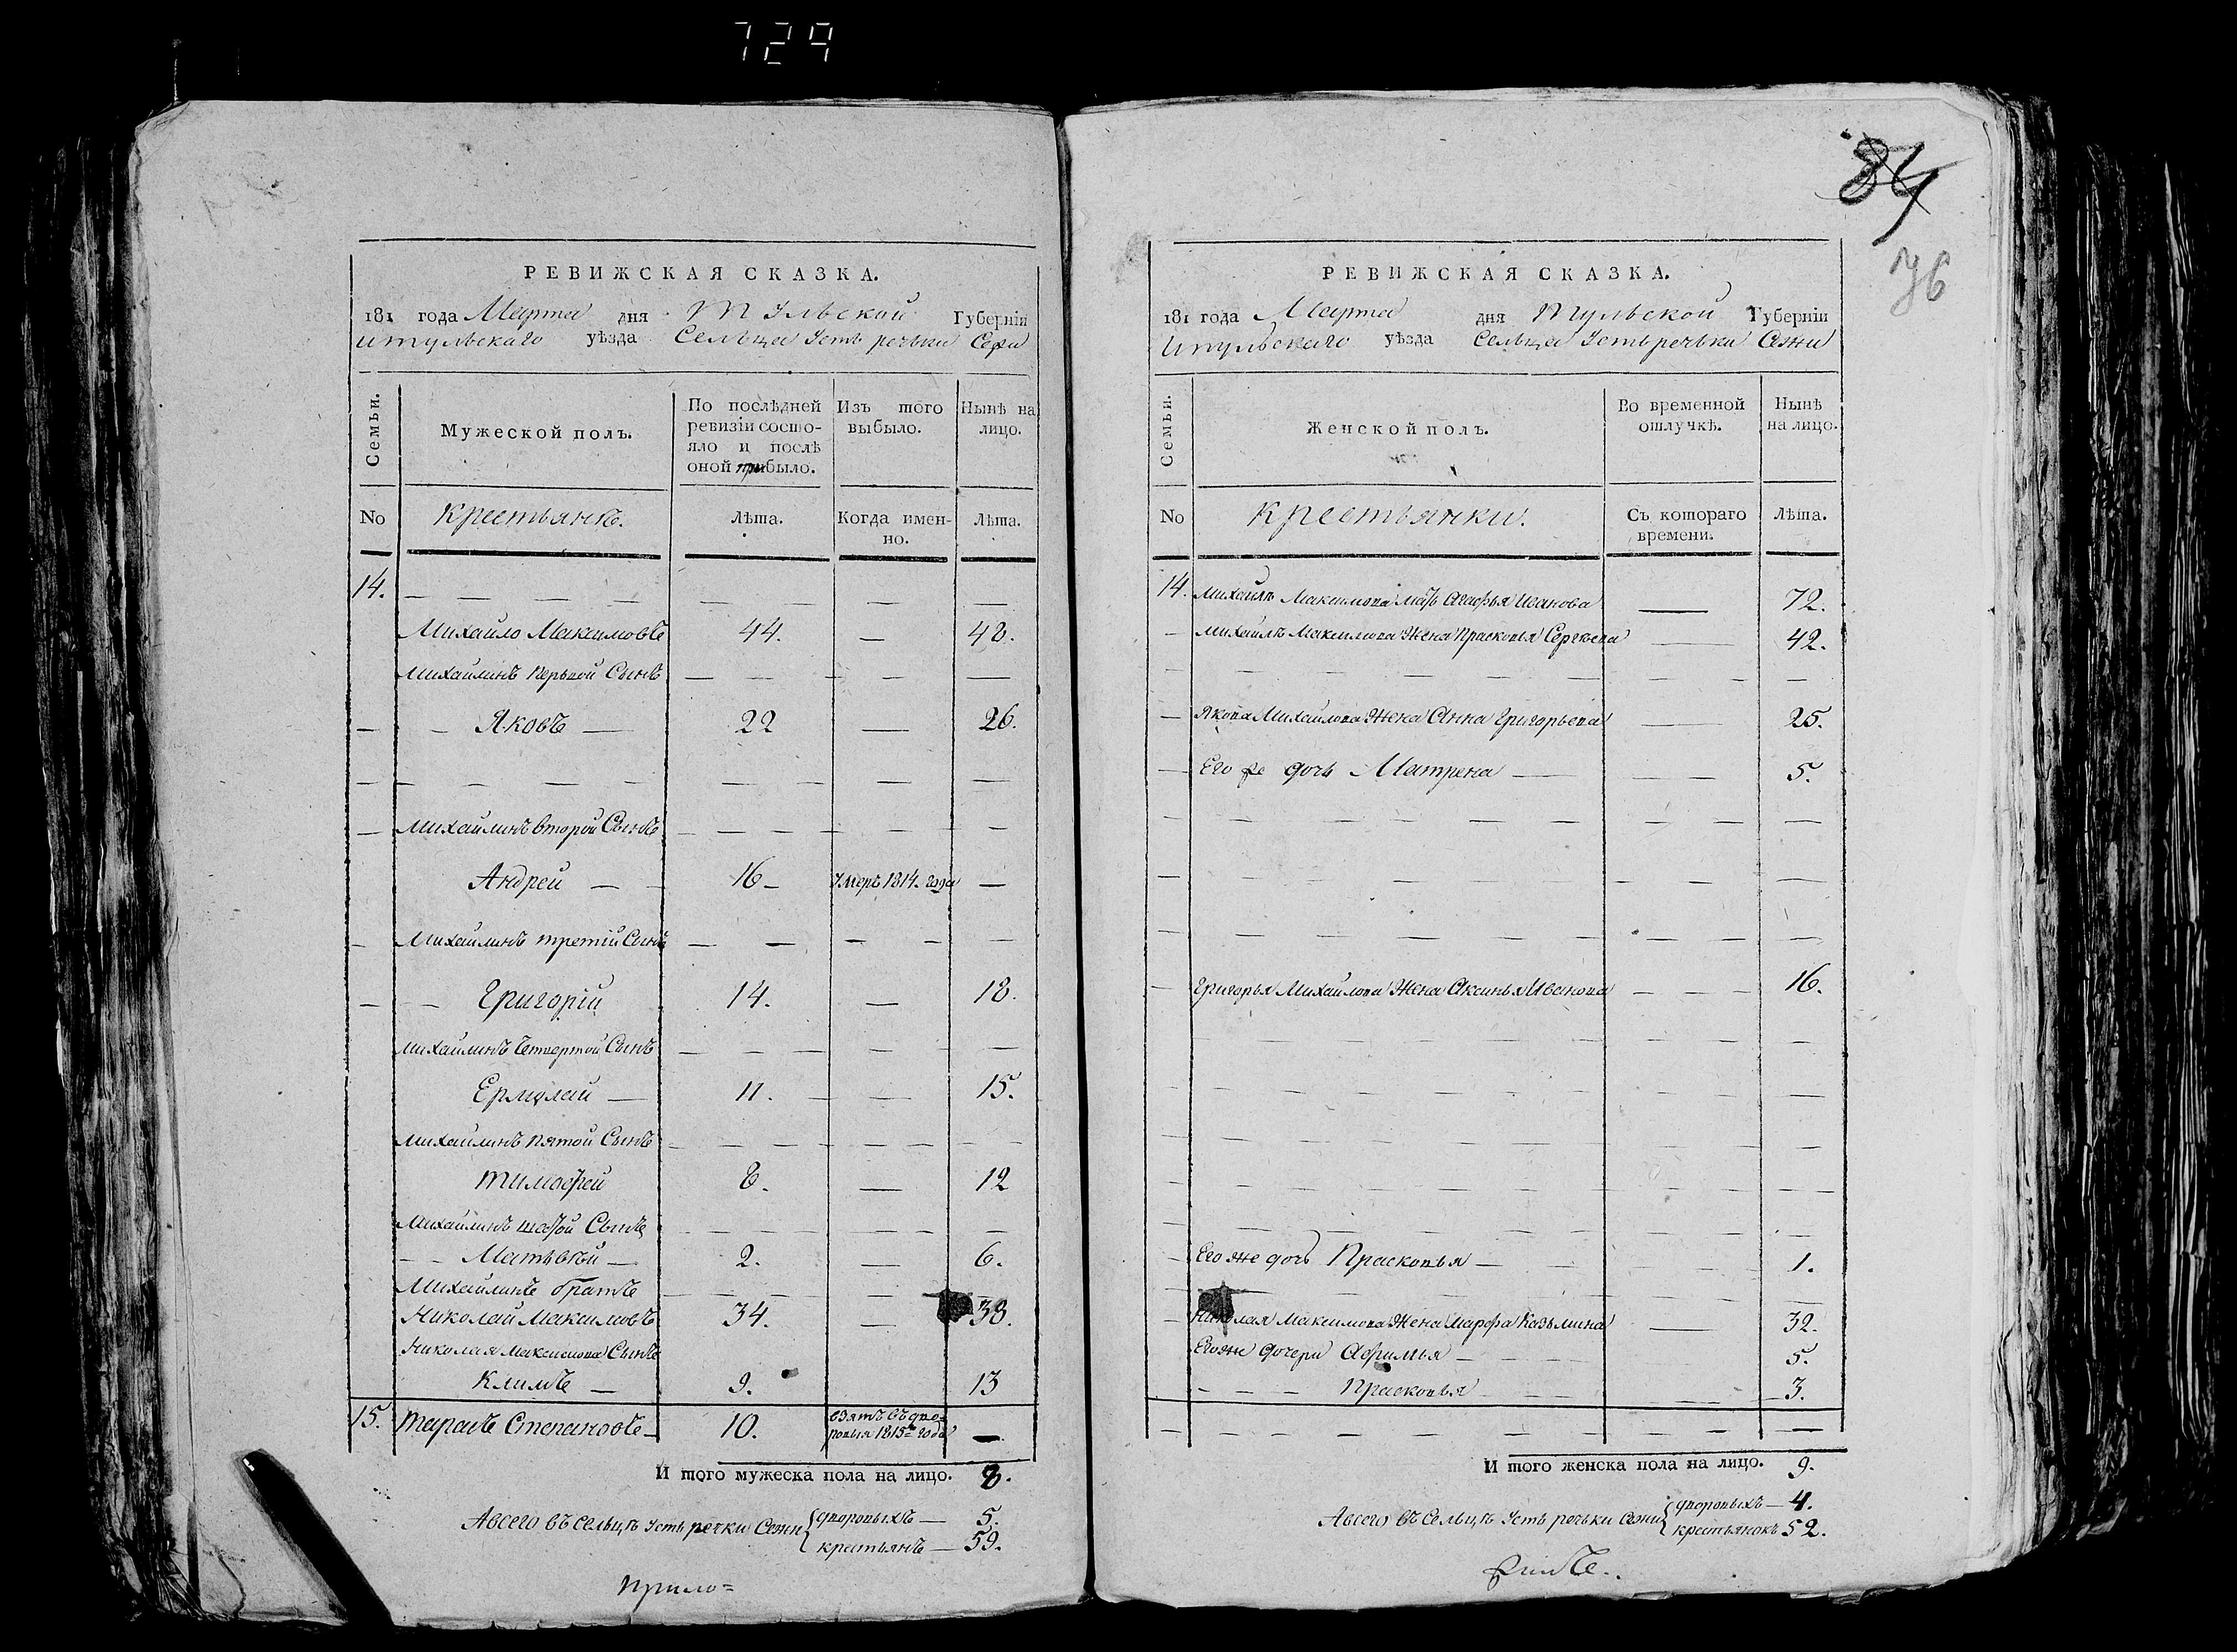 729
РЕВИЖСКАЯ СКАЗКА.
181 года Марта дня Тульской Губерніи
уѣзда Сельца Усть речьки Сежи
Семьи.
Мужеской полъ.
По послѣдней ревизіи состо-
яло и послѣ
оной прибыло.
Изъ того
выбыло.
Нынѣ на
лицо.
No
Крестьянъ.
Лѣта.
Когда имен-
но.
Лѣта.
14. — — — — — — — —
Михайло Максимовъ 44. — 48.
Михайлинъ первой Сынъ — — — — — —
— — Яковъ — 22 — 26.
— — — — — — — — —
— Михайлинъ второй Сынъ — — — — — —
Андрей — — 16 — Умеръ 1814. года —
— Михайлинъ третій Сынъ — — — — —
— — Григорій 14. — 18.
Михайлинъ четвертой Сынъ — — — — — —
Ермолай — 11. — — 15.
Михайлинъ пятой Сынъ — — — — — —
Тимофей 8. — 12
Михайлинъ шестой Сынъ — — — — — —
— — Матвѣй — 2. — 6.
Михайлинъ братъ — — — — — —
Николай Максимовъ 34. — 38.
Николая Максимова Сынъ
Климъ — 9. 13
15. Тарасъ Степановъ — 10. взятъ въ дво-
ровыя 1815го года —
И того мужеска пола на лицо. 8.
Авсего въ сельцѣ Усть речки Сежи { дворовыхъ — 5.
крестьянъ — 59.
прило=
84
76
РЕВИЖСКАЯ СКАЗКА.
181 года Марта дня Тульской Губерніи
уѣзда Сельца Усть речьки Сежи
Семьи.
Женской полъ.
Во временной
отлучкѣ.
Нынѣ
на лицо.
No
Крестьянки.
Съ котораго
времени.
Лѣта.
14. Михайлы Максимова мать Агафья Иванова — 72.
— Михайлы Максимова Жена Прасковья Сергѣева — 42.
— — — — — — — — —
— Якова Михайлова Жена Анна Григорьева — 25.
— Его же дочь Матрена — — — 5.
— — — — — — — — —
— — — — — — — — —
— — — — — — — — —
— Григорья Михайлова Жена Аксинья Иванова — — — 16.
— — — — — — — — —
— — — — — — — — —
— — — — — — — — —
— — — — — — — — —
— — — — — — — — —
— Его же дочь Прасковья — — — — 1.
— — — — — — — — —
— Николая Максимова Жена Марфа Казьмина — 32.
Его же дочери Афимья — — — — 5.
— — — — Прасковья — — 3.
— — — — — — — — —
И того женска пола на лицо. 9.
Авсего въ Сельцѣ Усть речьки Сежи { дворовыхъ — 4.
крестьянокъ 52.